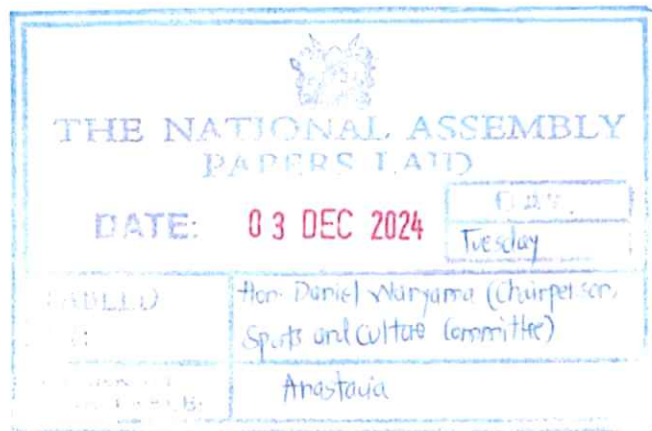 THE NATIONAL ASSEMBLY
PAPERS LAID
DATE: 03 DEC 2024
DAY.
Tuesday
TABLED
Hon. Daniel Wanyama (Chairperson,
Sports and Culture Committee)
Anastacia